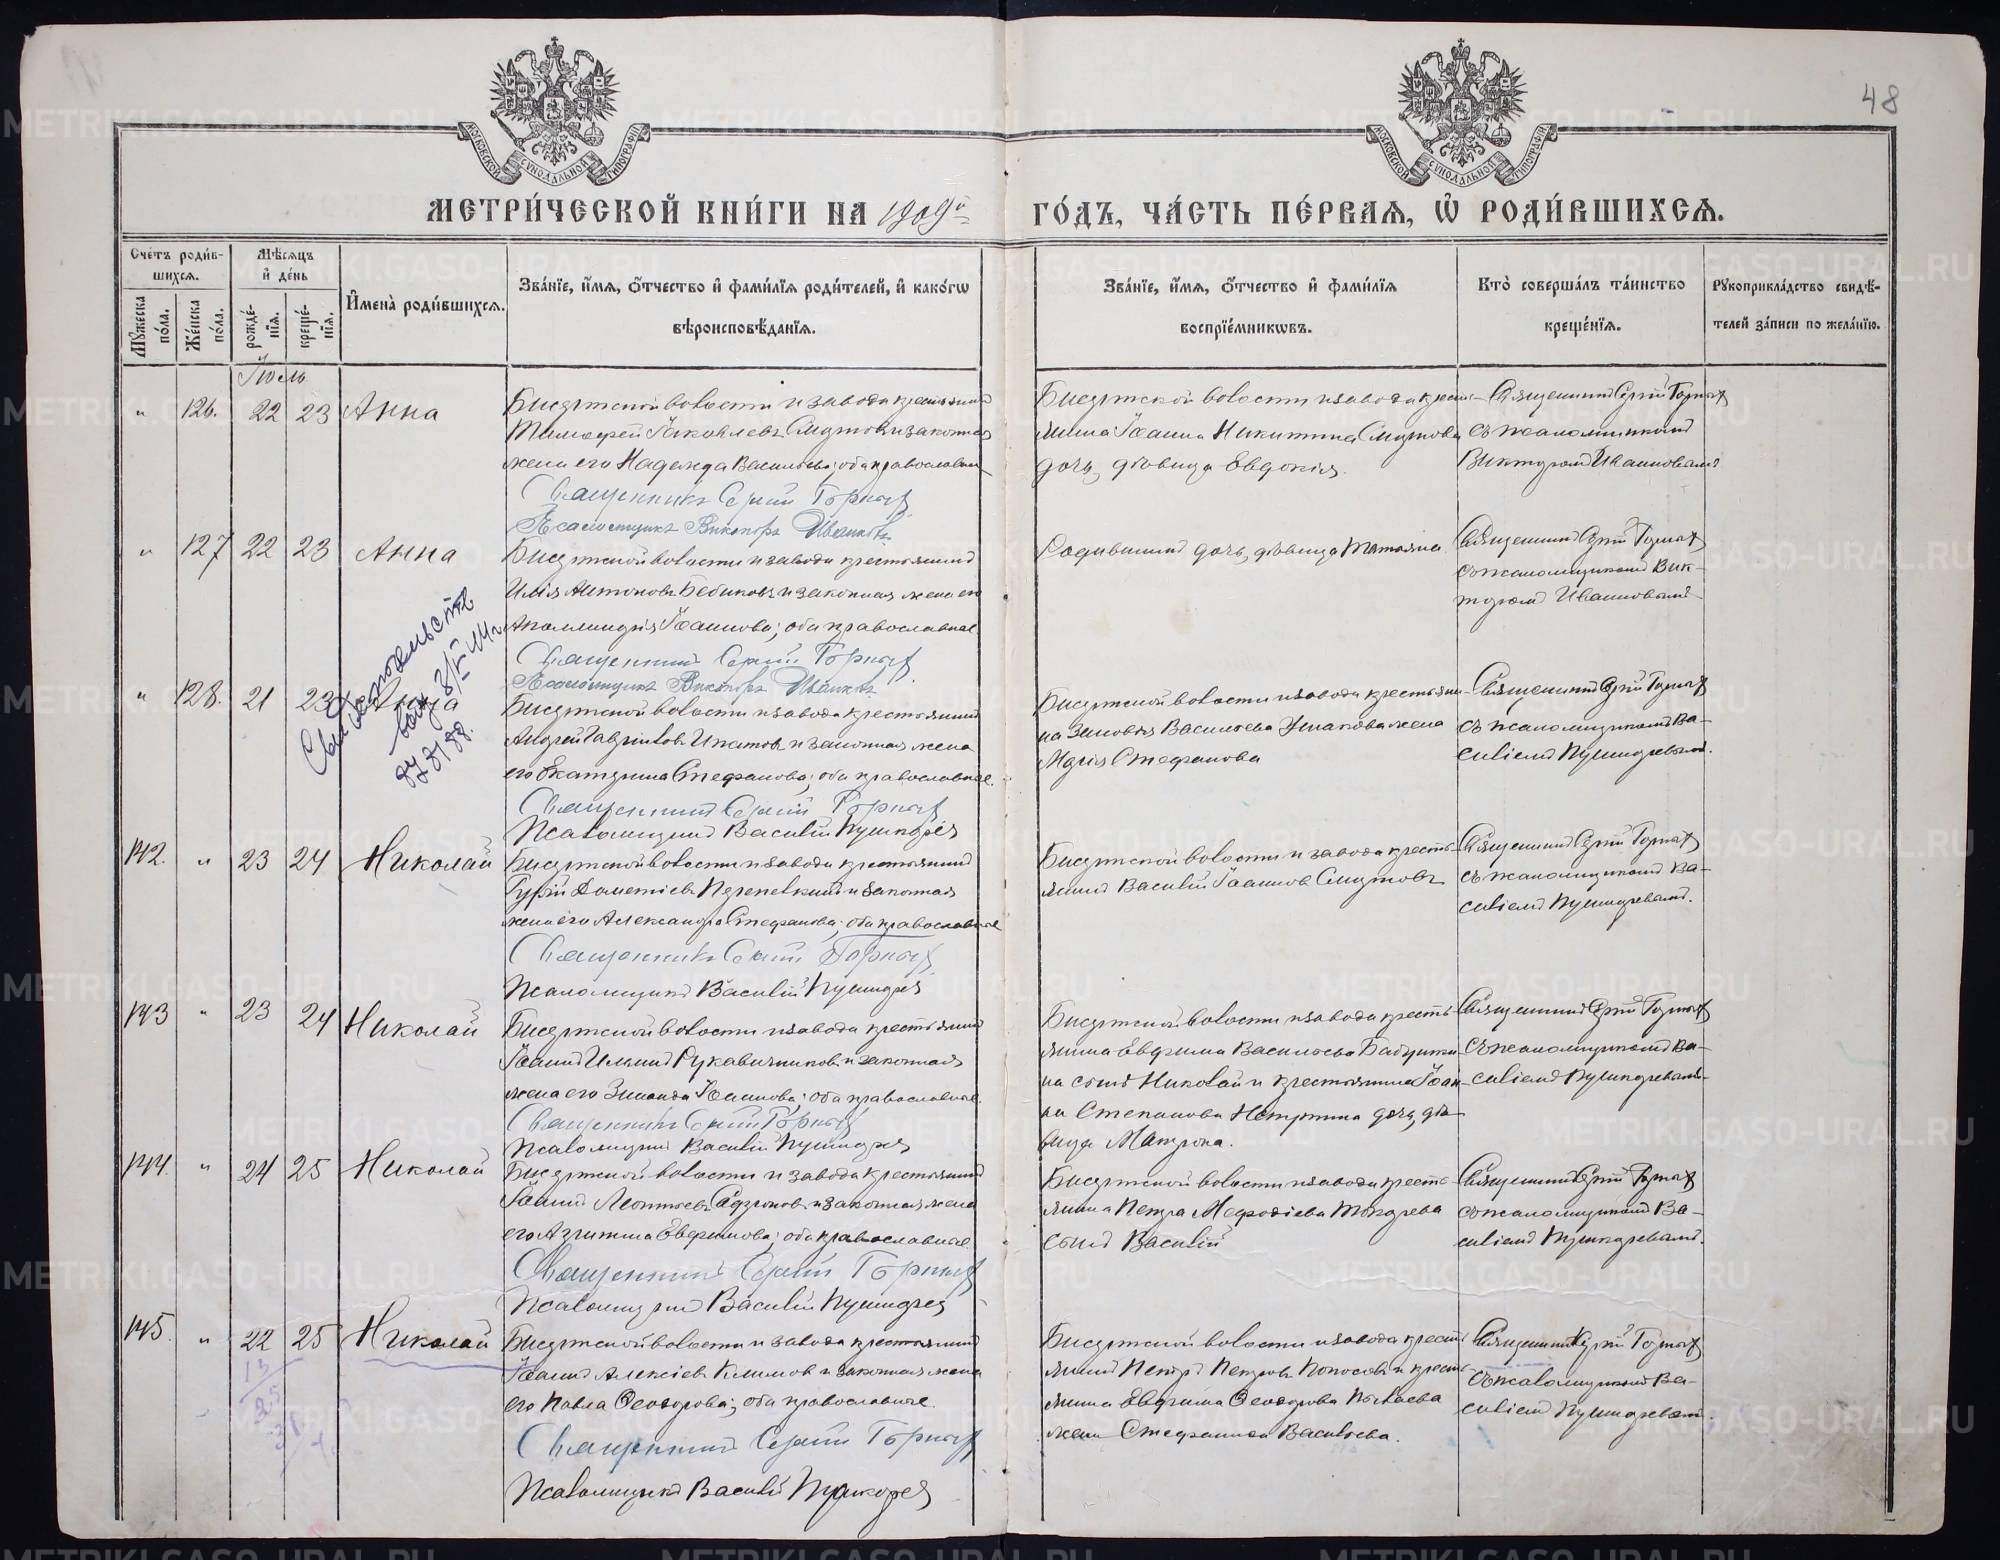 48
МОСКОВСКОЙ СѴНОДАЛЬНОЙ ТИПОГРАФІИ
МОСКОВСКОЙ СѴНОДАЛЬНОЙ ТИПОГРАФІИ
МЕТРИ́ЧЕСКОЙ КНИ́ГИ НА 1909й ГО́ДЪ, ЧА́СТЬ ПЕ́РВАѦ, Ѡ҆ РОДИ́ВШИХСѦ.
Сче́тъ роди́в-
шихсѧ.
Мꙋ́жеска по́ла.
Же́нска по́ла.
Мѣ́сѧцъ
и҆ де́нь
рожде́-
нїѧ.
креще́-
нїѧ.
И҆мена̀ роди́вшихсѧ.
Зва́нїе, и҆́мѧ, ѻ҆́тчество и҆ фами́лїѧ роди́телей, и҆ како́гѡ
вѣроисповѣ́данїѧ.
Зва́нїе, и҆́мѧ, ѻ҆́тчество и҆ фами́лїѧ
воспрїе́мникѡвъ.
Кто̀ соверша́лъ та́инство
креще́нїѧ.
Рꙋкоприкла́дство свидѣ́-
телей за́писи по жела́нїю.
Іюль
" 126. 22 23 Анна
Бисертской волости и завода крестьянинъ
Тимофей Іаковлевъ Смутовъ и законная
жена его Надежда Васильева; оба православные
Священникъ Сергій Горныхъ
Псаломщикъ Викторъ Ивановъ
Бисертской волости и завода кресть-
янина Іоанна Никитина Смутова
дочь, дѣвица Евдокія.
Священникъ Сергій Горныхъ
съ псаломщикомъ
Викторомъ Ивановымъ
" 127 22 23 Анна
Бисертской волости и завода крестьянинъ
Илія Антоновъ Бебиковъ и законная жена его
Аполлинарія Іоаннова; оба православные.
Священникъ Сергій Горныхъ
Псаломщикъ Викторъ Ивановъ
Родившихъ дочь, дѣвица Татьяна
Священникъ Сергій Горныхъ
съ псаломщикомъ Вик-
торомъ Ивановымъ
Свидетельство
выд. 8/V 14 г.
" 128. 21 23 Анна
Бисертской волости и завода крестьянинъ
Андрей Гавріиловъ Ипатовъ и законная жена
его Екатерина Стефанова; оба православные.
Священникъ Сергій Горныхъ
Псаломщикъ Василій Пушкаревъ
Бисертской волости и завода крестьяни-
на Зиновія Васильева Ушакова жена
Марія Стефанова
Священникъ Сергій Горныхъ
съ псаломщикомъ Ва-
силіемъ Пушкаревымъ.
142. " 23 24 Николай
Бисертской волости и завода крестьянинъ
Гурій Дометіевъ Перепелкинъ и законная
жена его Александра Стефанова; оба православные
Священникъ Сергій Горныхъ
Псаломщикъ Василій Пушкаревъ
Бисертской волости и завода кресть-
янинъ Василій Іоанновъ Смутовъ
Священникъ Сергій Горныхъ
съ псаломщикомъ Ва-
силіемъ Пушкаревымъ.
143 " 23 24 Николай
Бисертской волости и завода крестьянинъ
Іоаннъ Ильинъ Рукавичниковъ и законная
жена его Зинаида Іоаннова; оба православные.
Священникъ Сергій Горныхъ
Псаломщикъ Василій Пушкаревъ
Бисертской волости и завода кресть-
янина Евфима Васильева Бабушки-
на сынъ Николай и крестьянина Іоан-
на Степанова дочь, дѣ-
вица Матрона.
Священникъ Сергій Горныхъ
съ псаломщикомъ Ва-
силіемъ Пушкаревымъ.
144. " 24 25 Николай
Бисертской волости и завода крестьянинъ
Іоаннъ Леонтьевъ и законная жена
его Агрипина Евфимова; оба православные.
Священникъ Сергій Горныхъ
Псаломщикъ Василій Пушкаревъ
Бисертской волости и завода кресть-
янина Петра Мефодіева Токарева
сынъ Василій
Священникъ Сергій Горныхъ
съ псаломщикомъ Ва-
силіемъ Пушкаревымъ.
145. " 22 25 Николай
Бисертской волости и завода крестьянинъ
Іоаннъ Алексіевъ Климовъ и законная жена
его Павла Ѳеодорова; оба православные.
Священникъ Сергій Горныхъ
Псаломщикъ Василій Пушкаревъ
Бисертской волости и завода кресть-
янинъ Петръ Петровъ и кресть-
янина Евфима Ѳеодорова
жена Стефанида Васильева.
Священникъ Сергій Горныхъ
съ псаломщикомъ Ва-
силіемъ Пушкаревымъ.
METRIKI.GASO-URAL.RU